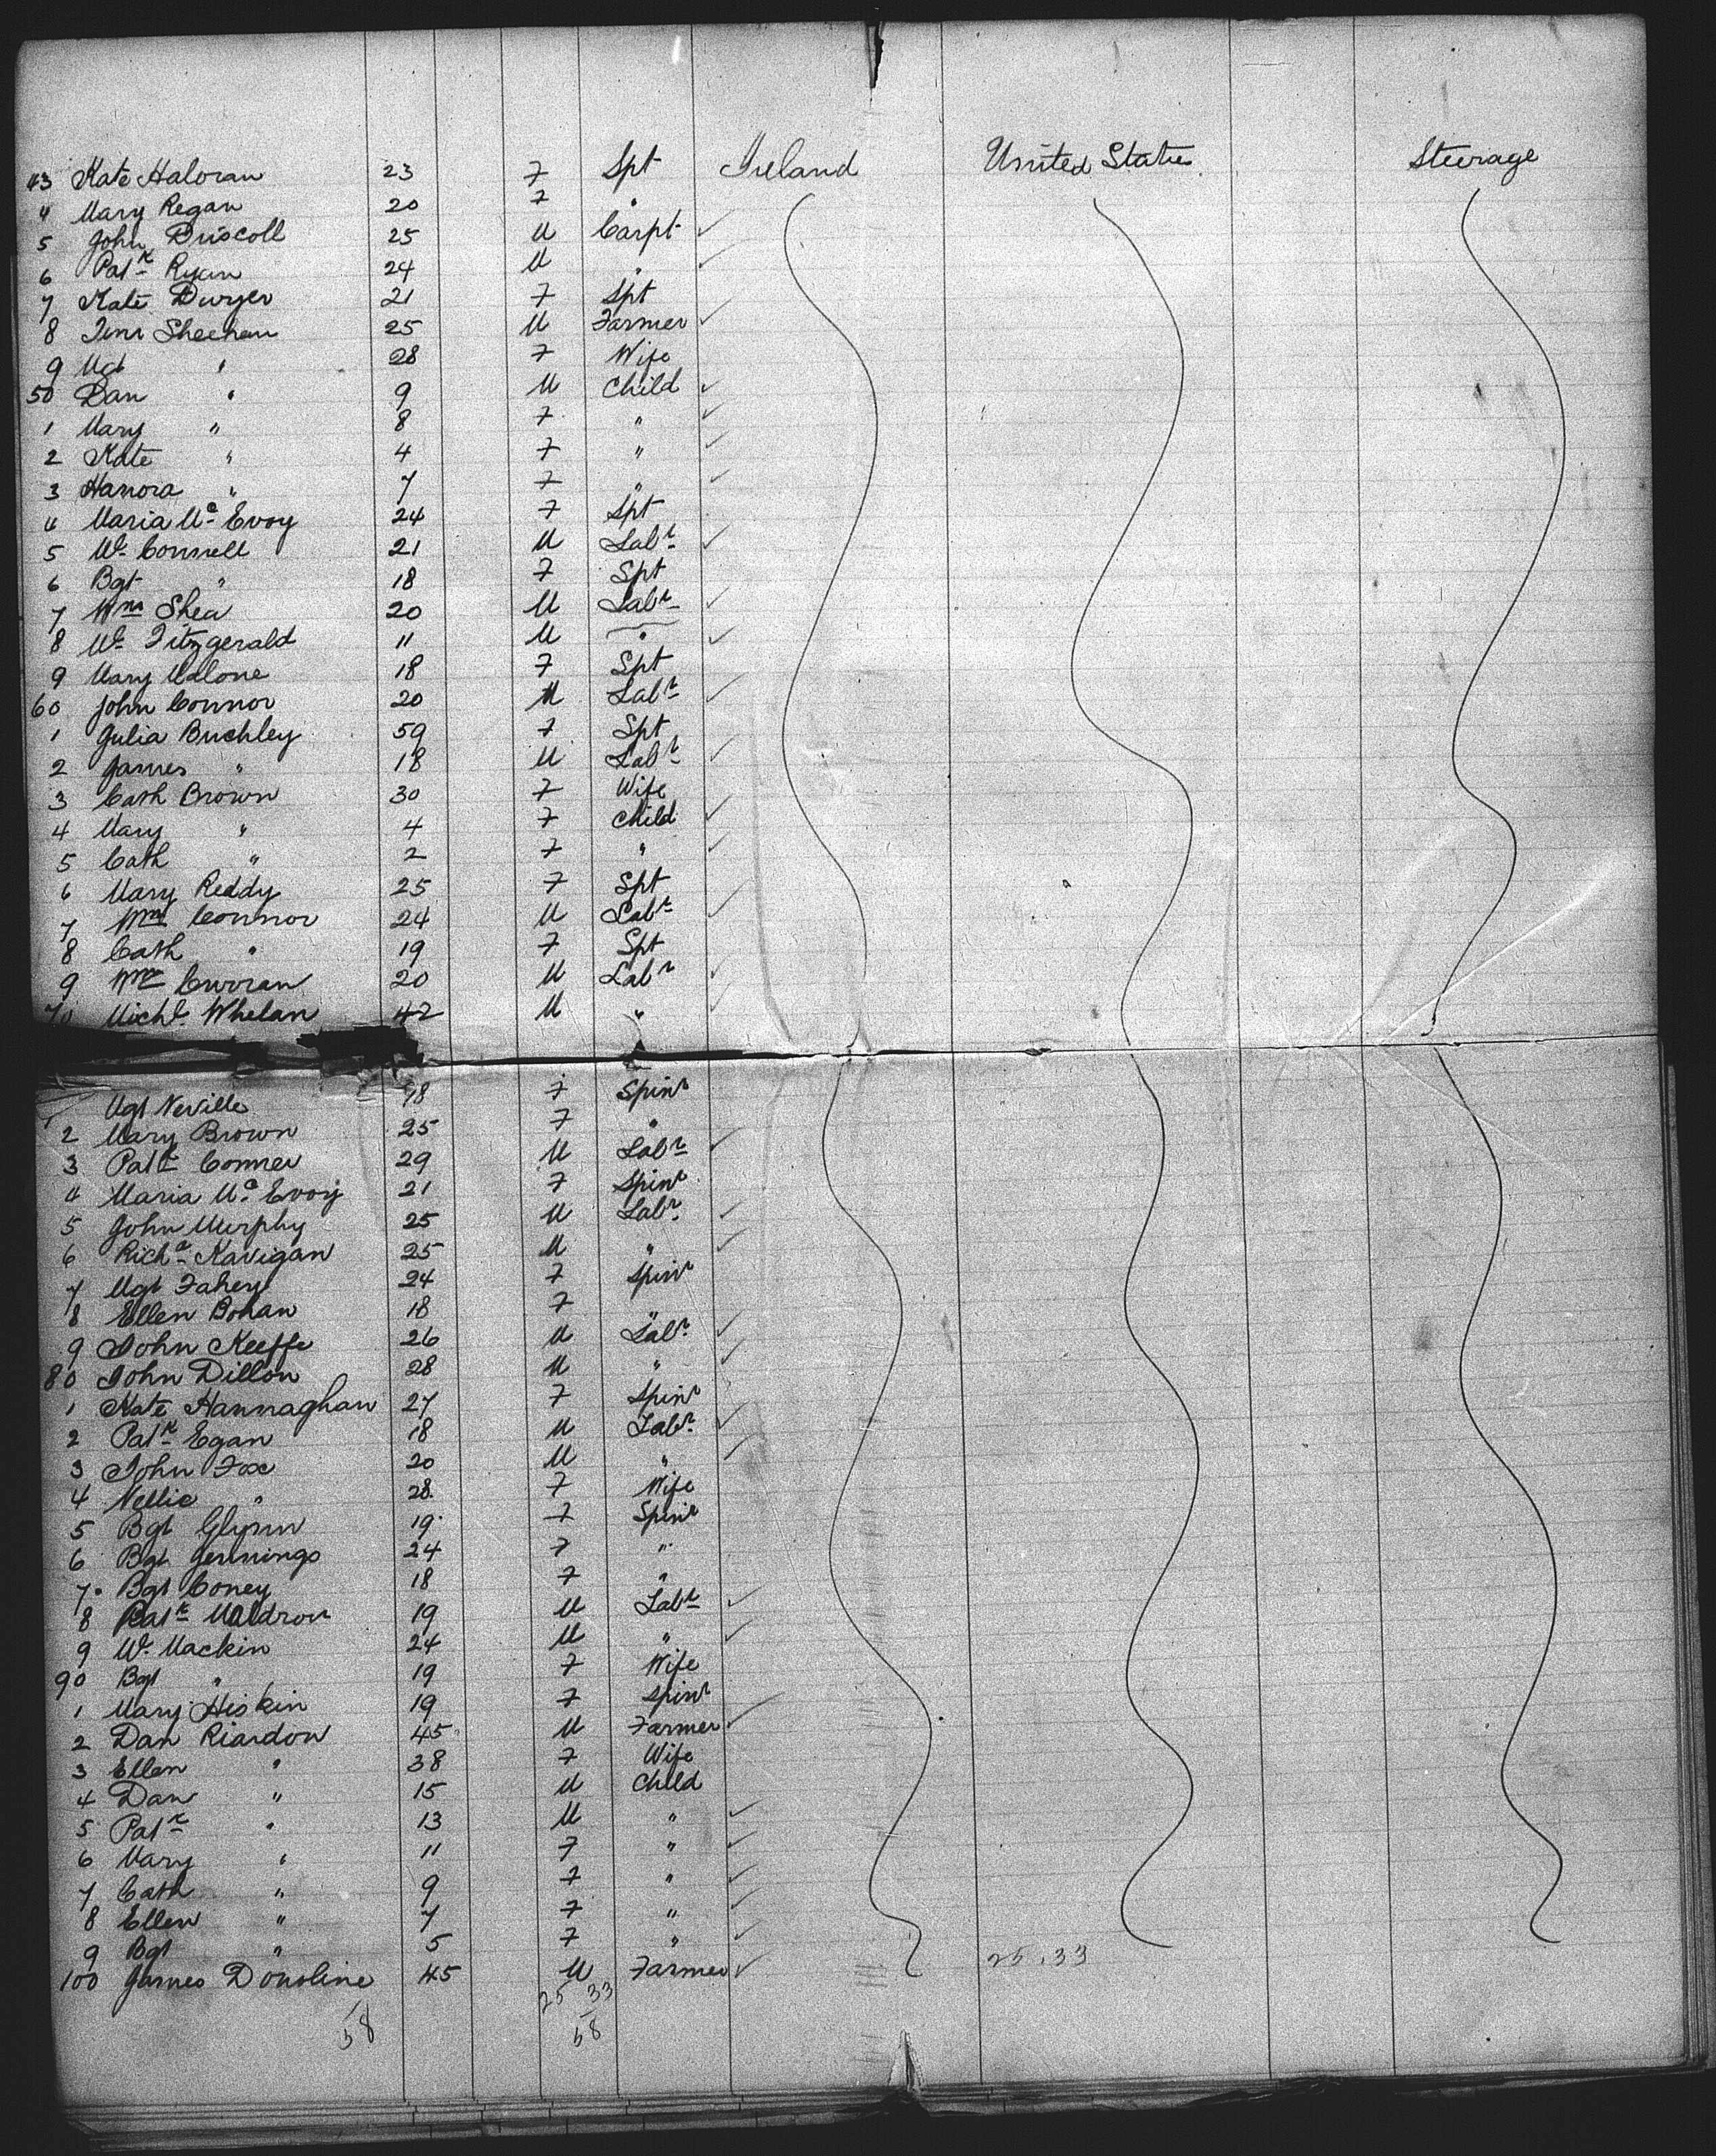 43 Kate Haloran 23 F Spt Ireland United States Steerage
4 Mary Regan 20 F "
5 John Driscoll 25 M Carpt ✓
6 Patk Ryan 24 M " ✓
7 Kate Dwyer 21 F Spt
8 Tim Sheehan 25 M Farmer ✓
9 Mgt " 28 F Wife
50 Dan " 9 M Child ✓
1 Mary " 8 F " ✓
2 Kate " 4 F " ✓
3 Hanora " 7 F " ✓
4 Maria Mc Evoy 24 F Spt
5 Wm Connell 21 M Labr ✓
6 Bgt " 18 F Spt
7 Wm Shea 20 M Labr ✓
8 Wm Fitzgerald 11 M " ✓
9 Mary Malone 18 F Spt
60 John Connor 20 M Labr ✓
1 Julia Buchley 59 F Spt
2 James " 18 M Labr ✓
3 Cath Brown 30 F Wife
4 Mary " 4 F Child ✓
5 Cath " 2 F " ✓
6 Mary Reddy 25 F Spt
7 Wm Connor 24 M Labr ✓
8 Cath " 19 F Spt
9 Wm Curran 20 M Labr ✓
70 Michl Whelan 42 M " ✓
1 Mgt Neville 18 F Spinr
2 Mary Brown 25 F "
3 Patk Conner 29 M Labr ✓
4 Maria Mc Evoy 21 F Spinr
5 John Murphy 25 M Labr ✓
6 Richd Kavigan 25 M " ✓
7 Mgt Fahey 24 F Spinr
8 Ellen Bohan 18 F "
9 John Keeffe 26 M Labr ✓
80 John Dillon 28 M " ✓
1 Kate Hannaghan 27 F Spinr
2 Patk Egan 18 M Labr ✓
3 John Fox 20 M " ✓
4 Nellie " 28 F Wife
5 Bgt Glynn 19 F Spinr
6 Bgt Jennings 24 F "
7 Bgt Coney 18 F "
8 Patk Waldron 19 M Labr ✓
9 Wm Mackin 24 M " ✓
90 Bgt " 19 F Wife
1 Mary Hiskin 19 F Spinr
2 Dan Riardon 45 M Farmer ✓
3 Ellen " 38 F Wife
4 Dan " 15 M Child
5 Patk " 13 M " ✓
6 Mary " 11 F " ✓
7 Cath " 9 F " ✓
8 Ellen " 7 F " ✓
9 Bgt " 5 F " ✓
100 James Donoline 45 M Farmer ✓ 25.33
25 33
58 58